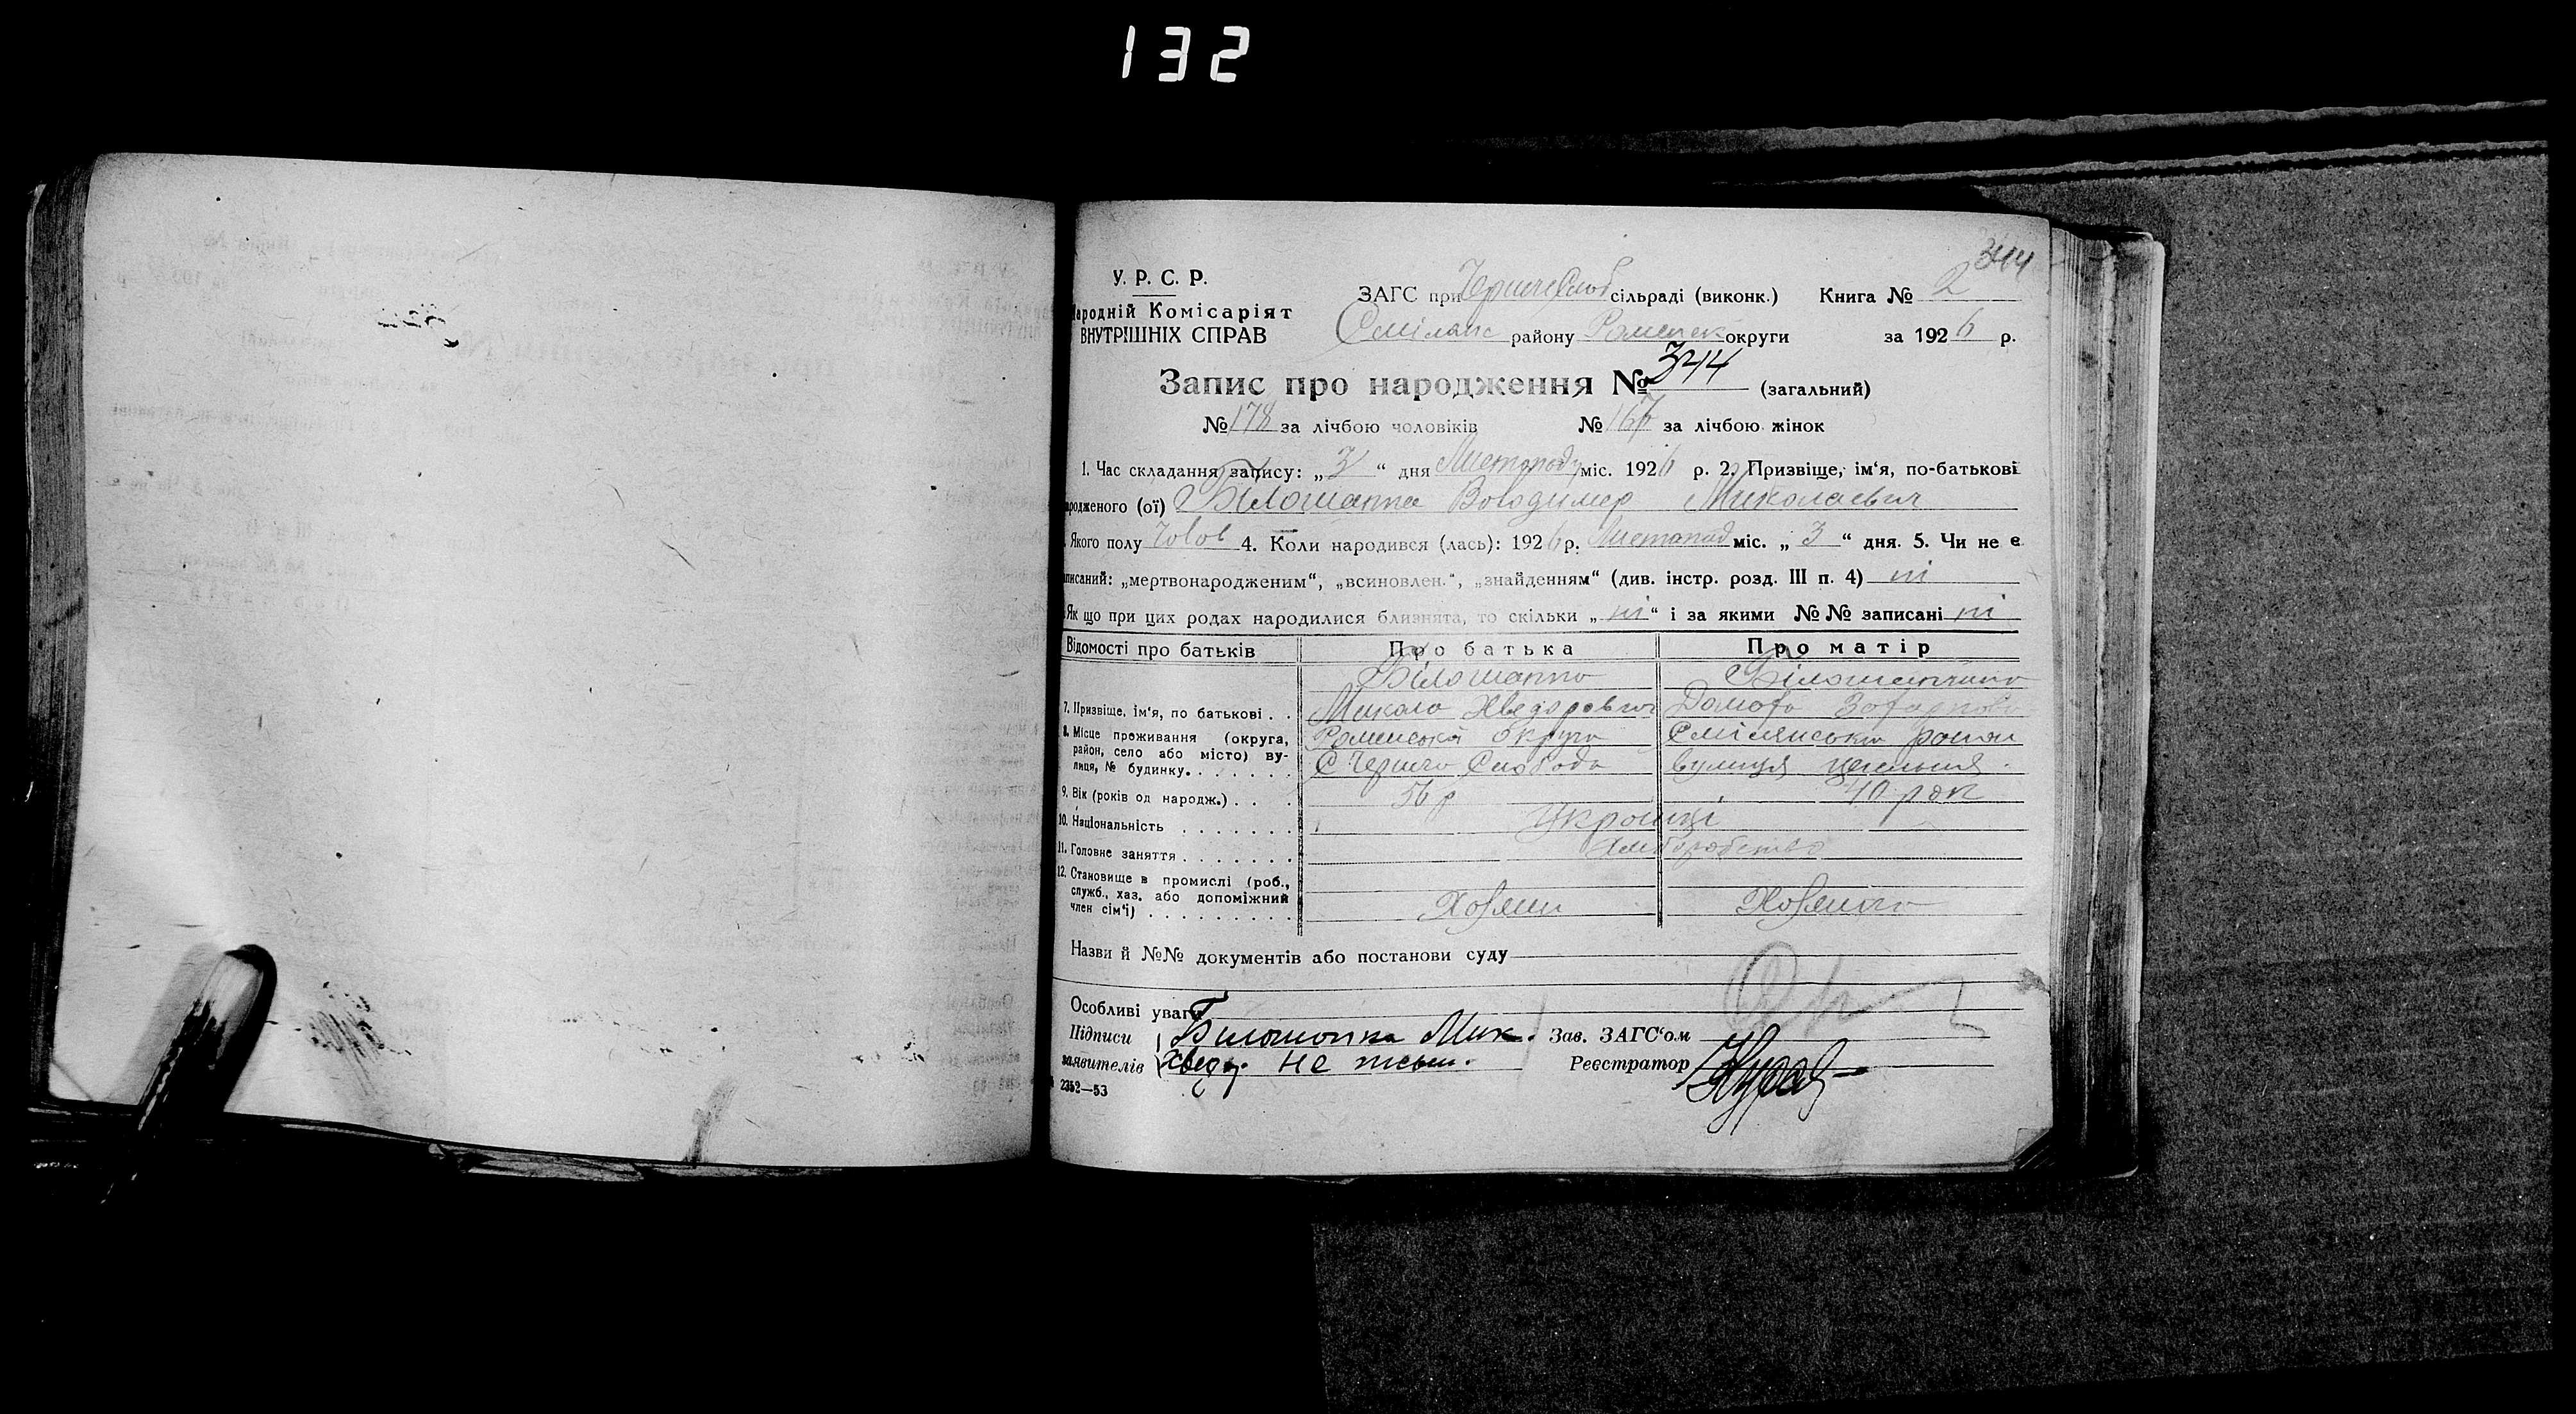 132
344
У. Р. С. Р.
Народній Комісаріят
ВНУТРІШНІХ СПРАВ
ЗАГС при сільраді (виконк.) Книга № 2
Смілянс району Роменськ округи за 1926 р.
Запис про народження № 344 (загальний)
№ 178 за лічбою чоловіків № за лічбою жінок
1. Час складання запису: „3“ дня Листопаду міс. 1926 р. 2. Призвіще, ім‘я, по-батькові
народженого (ої) Білошапка Володимер Миколаевич
Якого полу Чолов 4. Коли народився (лась): 1926 р. Листопад міс. „3“ дня. 5. Чи не є
записаний: „мертвонародженим“, „всиновлен.“, „знайденням“ (див. інстр. розд. III п. 4) ні
Як що при цих родах народилися близнята, то скільки „ні“ і за якими №№ записані ні
Відомості про батьків Про батька Про матір
Білошапка
7. Призвіще, ім‘я, по батькові . . Микола Хведорович
8. Місце проживання (округа, район, село або місто) вулиця, № будинку. . . . . . Роменська округа Смілянський район
Слобода вулиця
9. Вік (років од народж.) . . . 56 р 40 рок
10. Національність . . . . . . . Українці
11. Головне заняття . . . . . . . Хліборобство
12. Становище в промислі (роб., служб., хаз. або допоміжний член сім‘ї) . . . . . . . . . Хозяин Хозяйка
Назви й №№ документів або постанови суду
Особливі уваги
Підписи Білошопка Мик. Зав. ЗАГС‘ом
заявителів Хвед. не письм. Реєстратор
2352—53